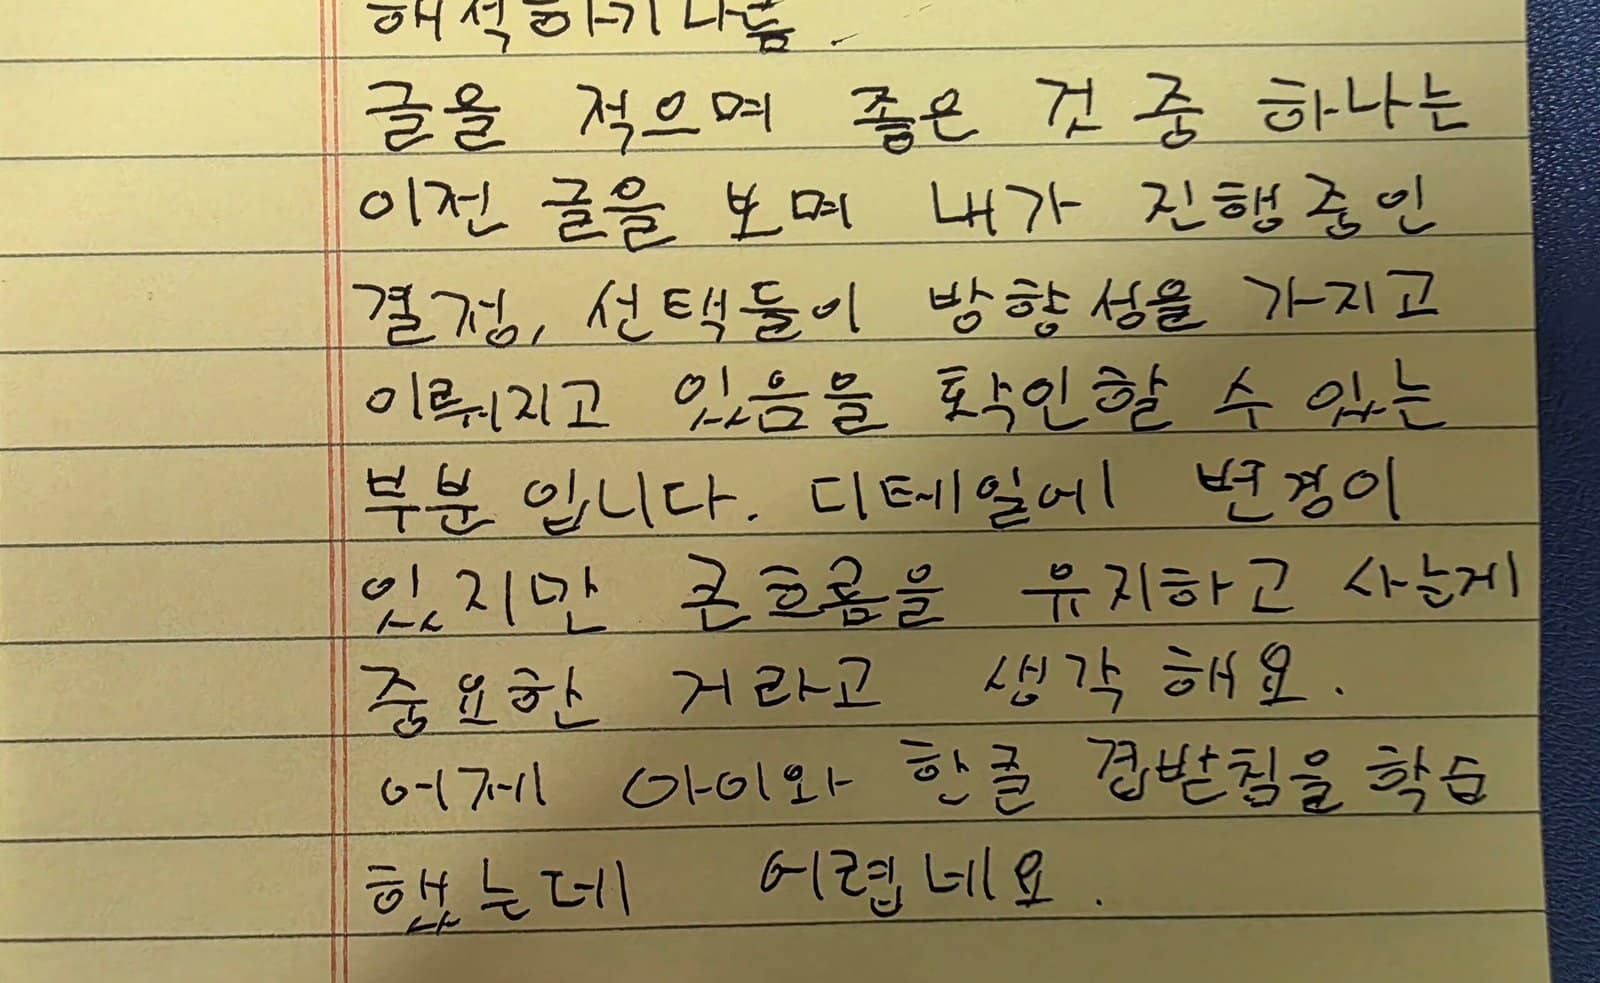 해석하기 나름.
글을 적으며 좋은 것 중 하나는
이전 글을 보며 내가 진행중인
결정, 선택들이 방향성을 가지고
이뤄지고 있음을 확인할 수 있는
부분 입니다. 디테일에 변경이
있지만 큰흐름을 유지하고 사는게
중요한 거라고 생각해요.
어제 아이와 한글 겹받침을 학습
했는데 어렵네요.